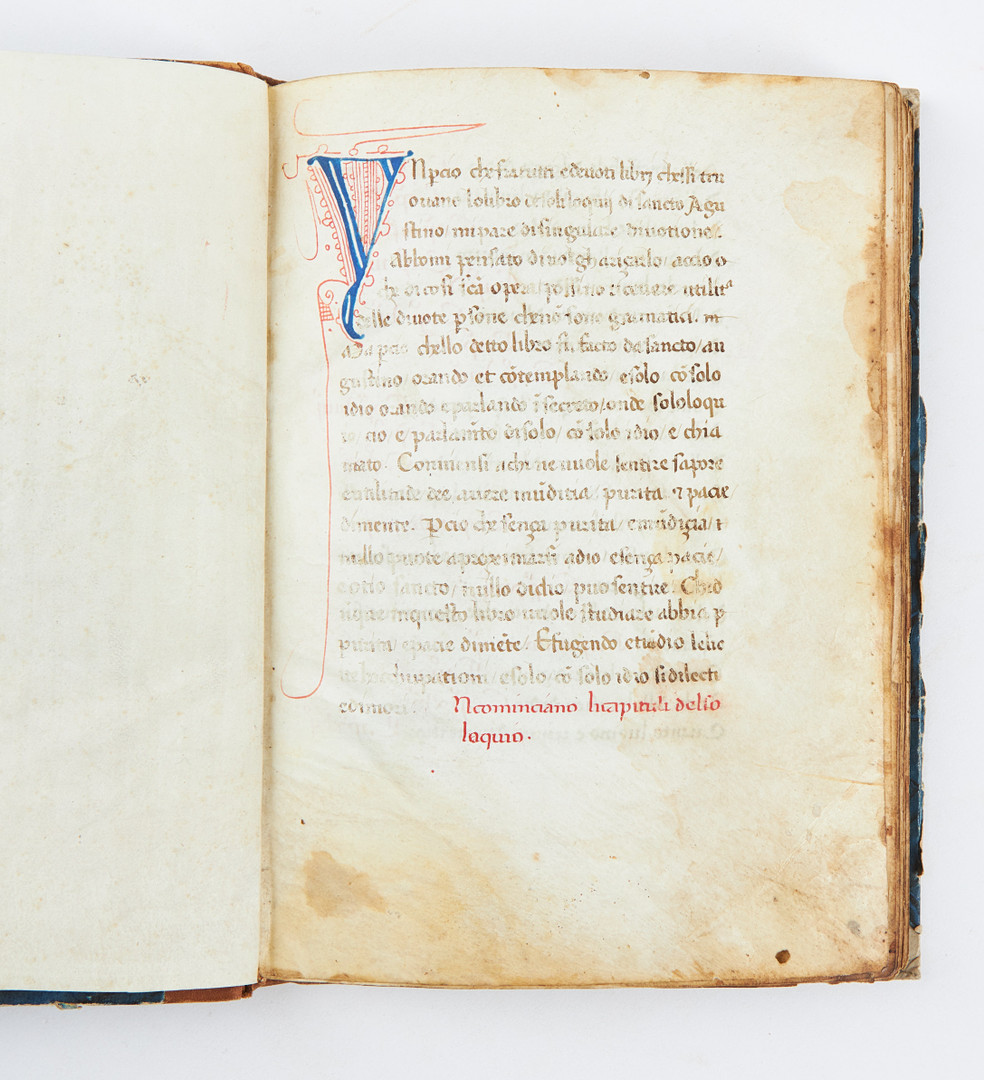 Y Npcio che fra tutti edeuoti libri chessi tru
ouano lo libro de soliloquij di sancto Agu
stino / mi pare di singulare diuotione /.
Abbomi pensato di uolgharizarlo / accio
che di cosi scã opera / possino riceuere utilitª
delle diuote psone che nõ sono gramatici.
Ma pcio chello detto libro fu facto da sancto / au
gustino / orando et cõtemplando / e solo / cõ solo
idio orando e parlando ĩ secreto / onde sololoqu
io cio e parlamẽto di solo / cõ solo idio / e chia
mato. Conuiensi a chi ne uuole sentire sapore
et utilitade dee auere mũditia / purita / ⁊ pacie /
di mente. Pcio che sença purita / e mũdiçia /
nullo puote aproximarsi adio / e senza pacie /
e otio sancto / nullo di dio puo sentire. Chid
ũque in questo libro uuole studiare abbia p
purita / e pacie di mẽte / E fugendo etiãdio le lic
ite hocchupationi / e solo / cõ solo idio si dilecti
e dimori. Ncominciano li capituli del so
loquio.